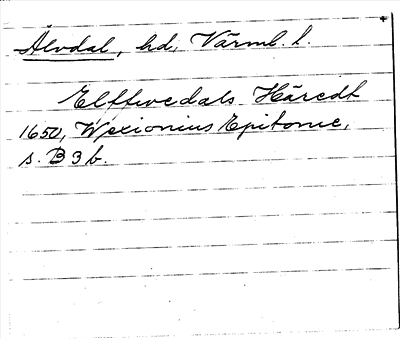 Älvdal, hd, Värml. l.
Elffwedals Häredt
1650, Wexionius Epitome,
s. B 3 b.